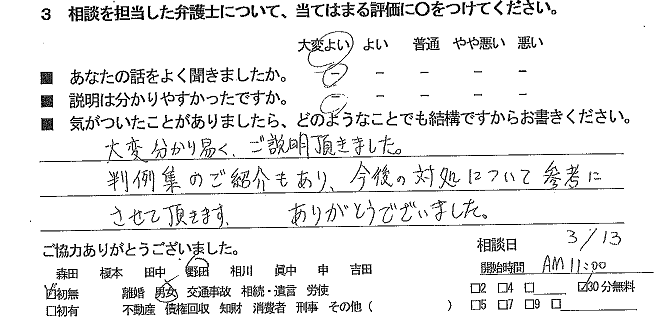 3 相談を担当した弁護士について、当てはまる評価に○をつけてください。
大変よい よい 普通 やや悪い 悪い
■ あなたの話をよく聞きましたか。 － － － － －
■ 説明は分かりやすかったですか。 － － － － －
■ 気がついたことがありましたら、どのようなことでも結構ですからお書きください。
大変分かり易く、ご説明頂きました。
判例集のご紹介もあり、今後の対処について参考に
させて頂きます、 ありがとうございました。
ご協力ありがとうございました。
相談日 3/13
森田 榎本 田中 野田 相川 眞中 申 吉田
開始時間 AM 11:00
☑初無 離婚 男女 交通事故 相続・遺言 労使 □2 □4 □ ☑30分無料
□初有 不動産 債権回収 知財 消費者 刑事 その他（ ） □5 □7 □9 □